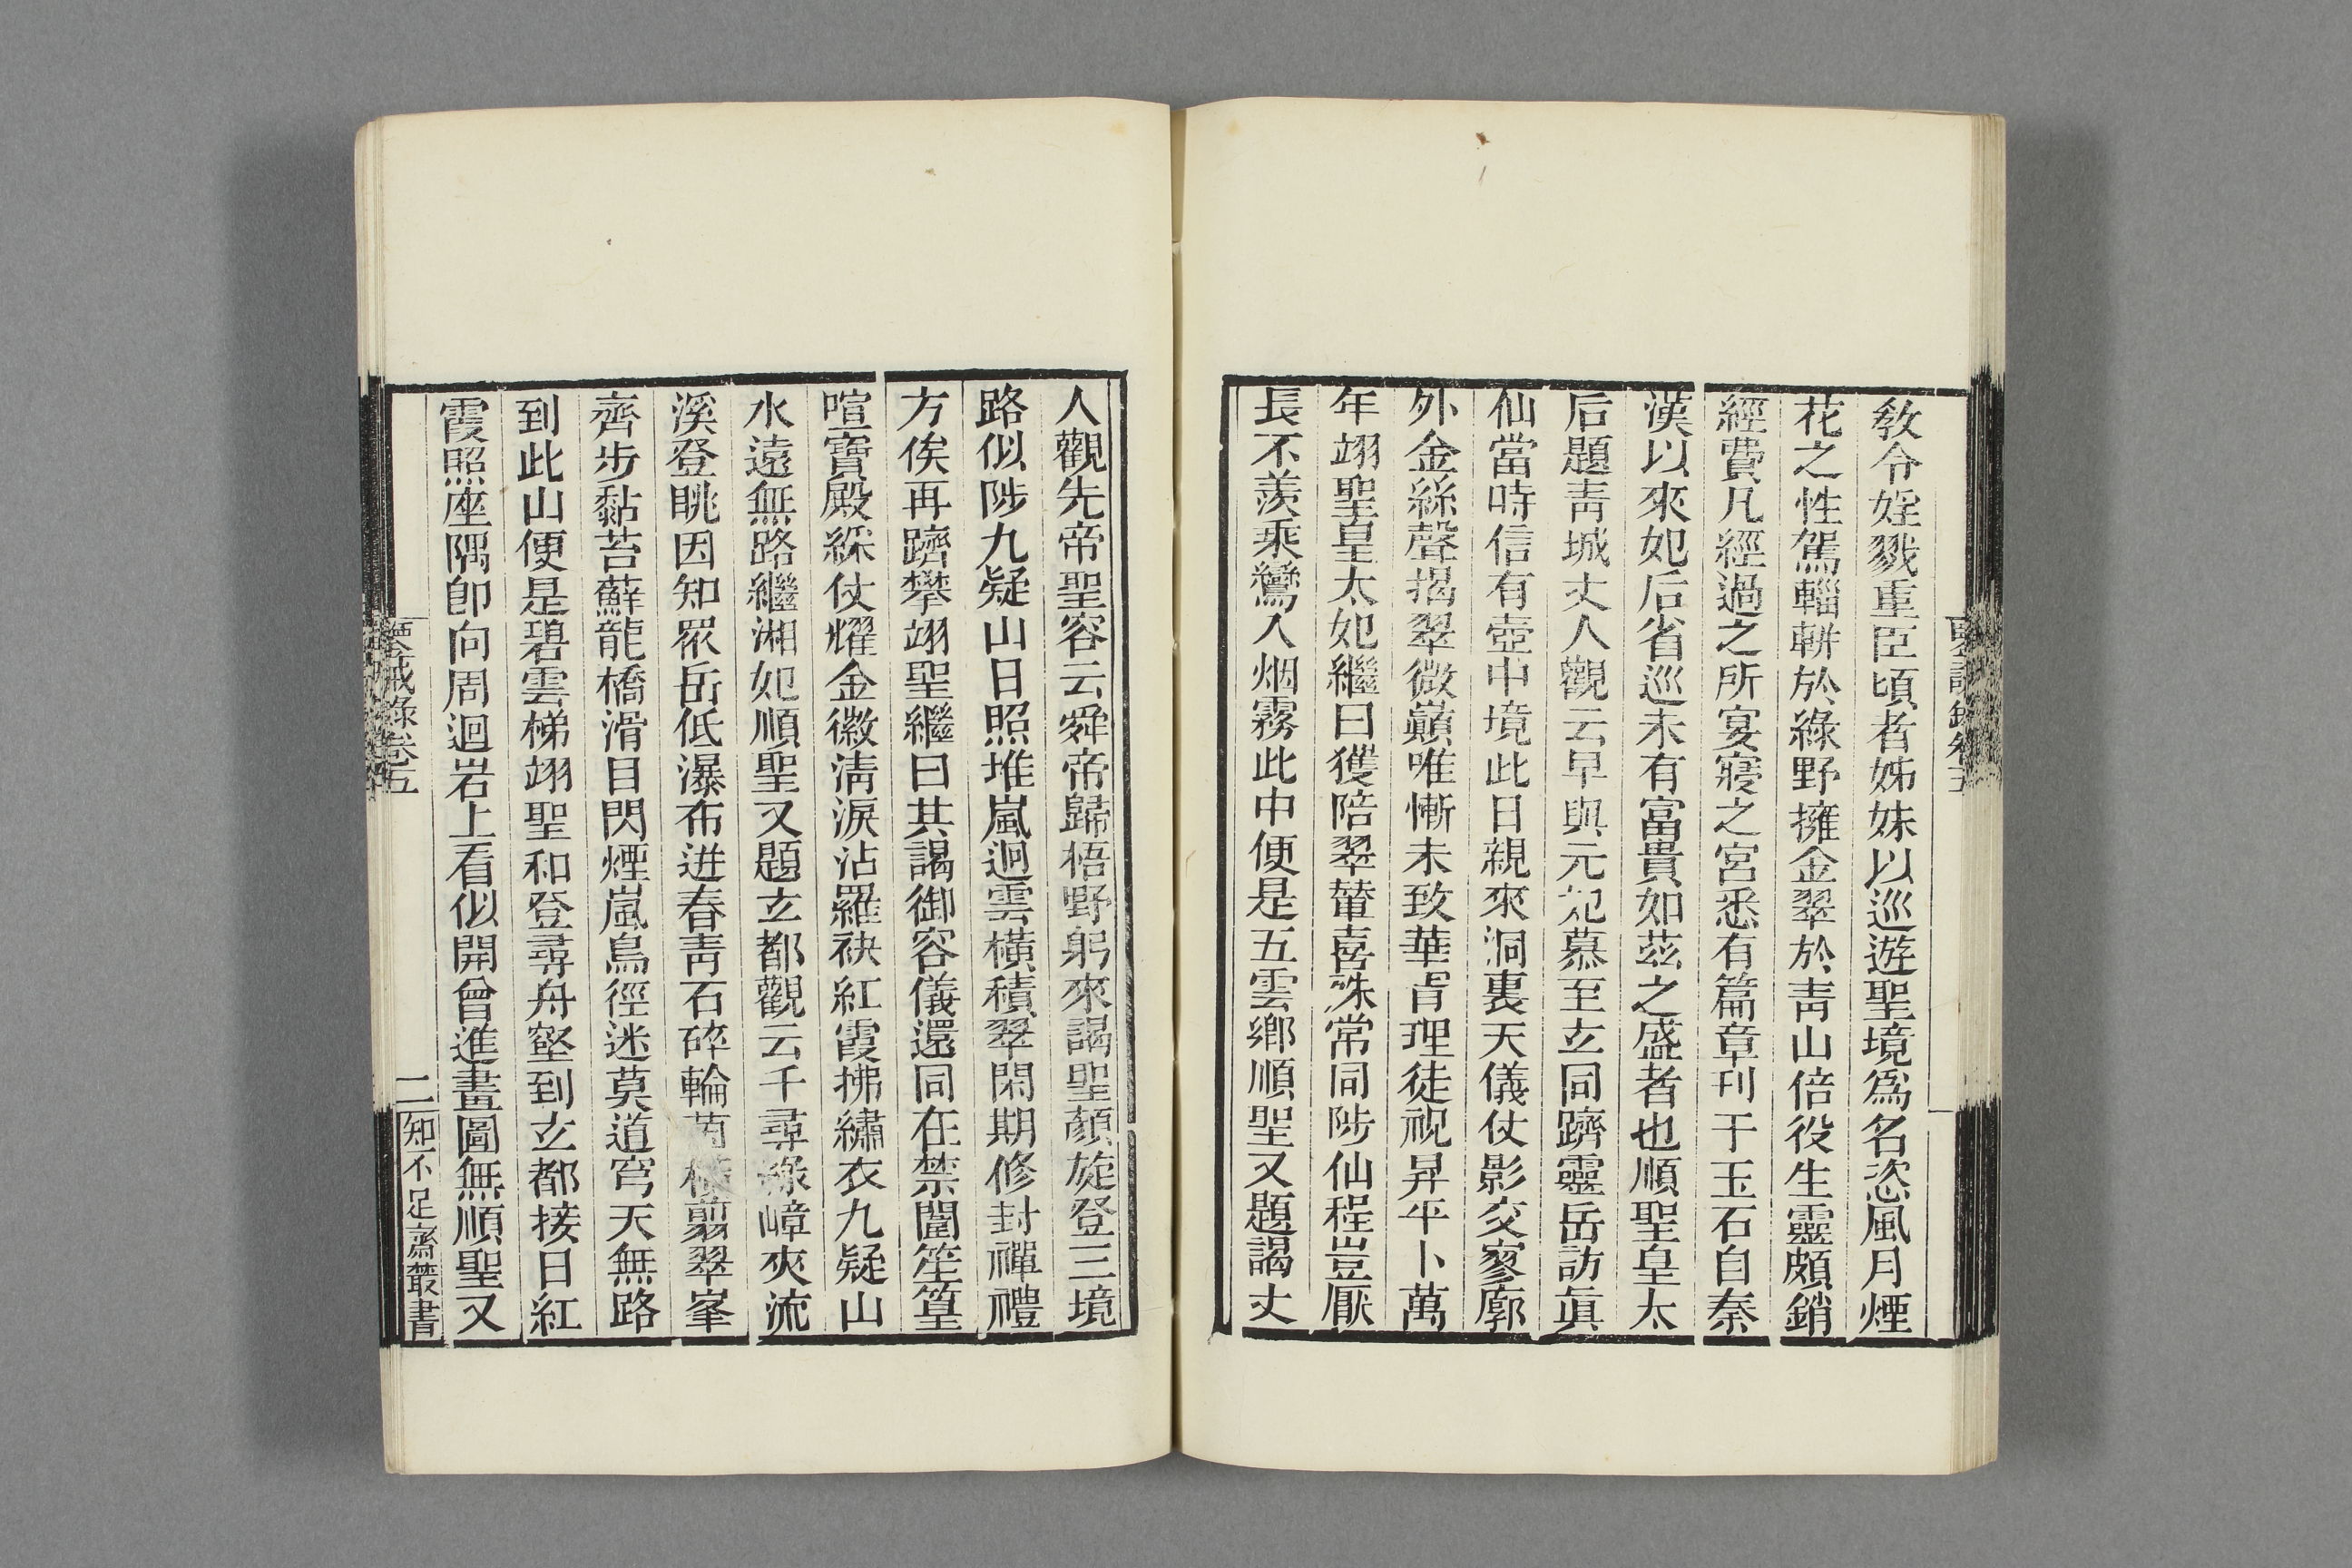 教令婬戮重臣頃者姊妹以巡遊聖境爲名恣風月煙
花之性駕輜軿於綠野擁金翠於靑山倍役生靈頗銷
經費凡經過之所宴寢之宮悉有篇章刊于玉石自秦
漢以來妃后省巡未有富貴如茲之盛者也順聖皇太
后題靑城丈人觀云早與元妃慕至玄同躋靈岳訪眞
仙當時信有壺中境此日親來洞裏天儀仗影交寥廓
外金絲聲揭翠微巔唯慚未致華胥理徒視昇平卜萬
年翊聖皇太妃繼曰獲陪翠輦喜殊常同陟仙程豈厭
長不羨乘鸞入烟霧此中便是五雲鄉順聖又題謁丈
人觀先帝聖容云舜帝歸梧野躬來謁聖顏旋登三境
路似陟九疑山日照堆嵐迥雲橫積翠閑期修封禪禮
方俟再躋攀翊聖繼曰共謁御容儀還同在禁闈笙簧
喧寶殿綵仗耀金徽淸淚沾羅袂紅霞拂繡衣九疑山
水遠無路繼湘妃順聖又題玄都觀云千尋綠嶂夾流
溪登眺因知眾岳低瀑布迸春靑石碎輪菌橫翦翠峯
齊步黏苔蘚龍橋滑目閃煙嵐鳥徑迷莫道穹天無路
到此山便是碧雲梯翊聖和登尋丹壑到玄都接日紅
霞照座隅卽向周迴岩上看似開曾進畫圖無順聖又
鑒誡錄卷五
二
知不足齋叢書